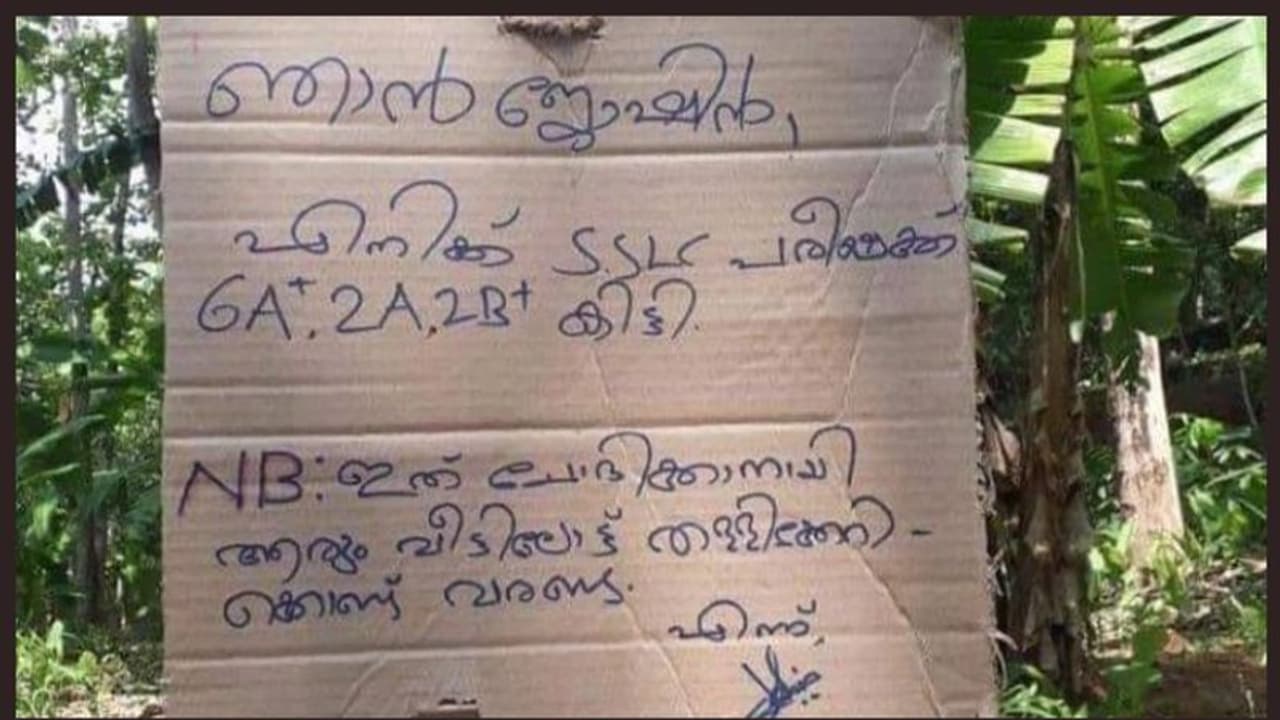 ഞാൻ ജ്യോഷിൻ,
എനിക്ക് S.SLC പരീക്ഷക്ക്
6A⁺, 2A, 2B⁺ കിട്ടി.
NB: ഇത് ചോദിക്കാനായി
ആരും വീട്ടിലോട്ട് തള്ളിക്കേറി-
ക്കൊണ്ട് വരണ്ട.
എന്ന്,